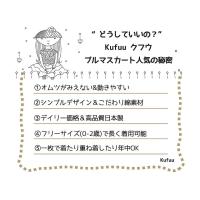 “ どうしていいの？”
Kufuu クフウ
ブルマスカート人気の秘密
①オムツがみえない&動きやすい
②シンプルデザイン＆こだわり綿素材
③デイリー価格＆高品質日本製
④フリーサイズ(0-2歳)で長く着用可能
⑤一枚で着たり重ね着したり年中OK
Kufuu